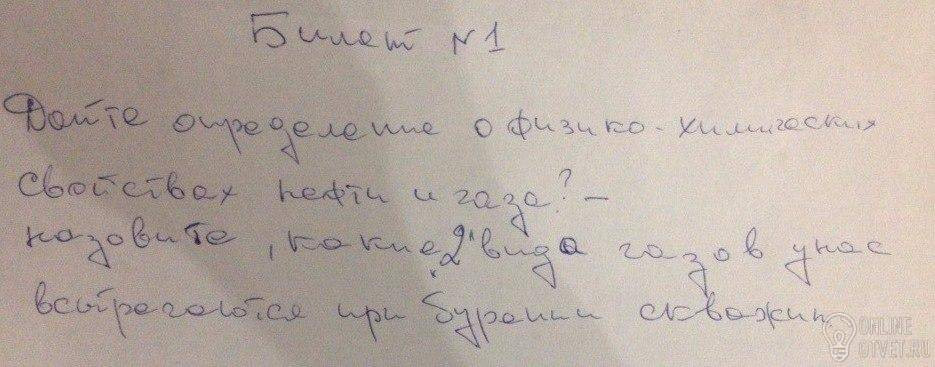 Билет №1
Дайте определение о физико-химических
свойствах нефти и газа? –
назовите, какие 2 вида газов у нас
встречаются при бурении скважин.
ONLINE
OTVET.RU